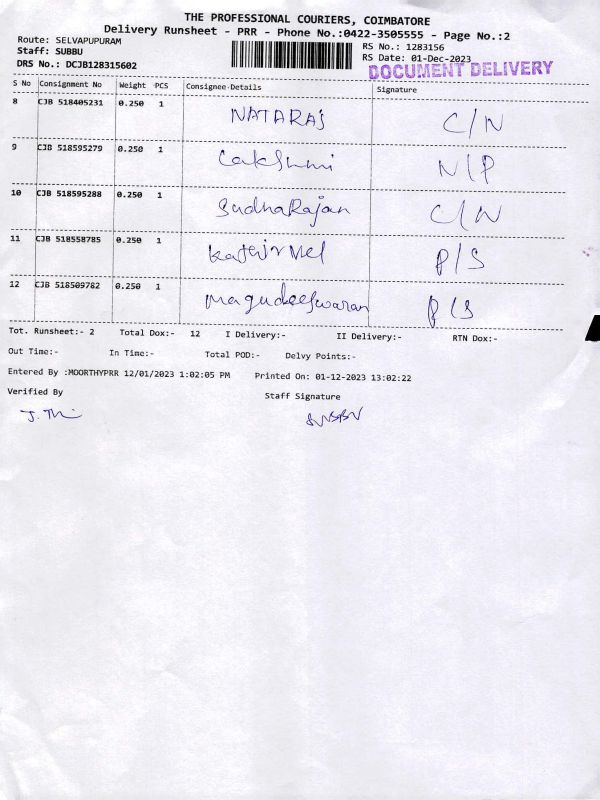 THE PROFESSIONAL COURIERS, COIMBATORE
Delivery Runsheet - PRR - Phone No.:0422-3505555 - Page No.:2
Route: SELVAPUPURAM RS No.: 1283156
Staff: SUBBU RS Date: 01-Dec-2023
DRS No.: DCJB128315602 DOCUMENT DELIVERY
S No Consignment No Weight PCS Consignee Details Signature
8 CJB 518405231 0.250 1 NATARAJ C/N
9 CJB 518595279 0.250 1 Lakshmi N/P
10 CJB 518595288 0.250 1 SudhaRajan C/N
11 CJB 518558785 0.250 1 Kathirvel P/S
12 CJB 518509782 0.250 1 Magudeeswaran P/S
Tot. Runsheet:- 2 Total Dox:- 12 I Delivery:- II Delivery:- RTN Dox:-
Out Time:- In Time:- Total POD:- Delvy Points:-
Entered By :MOORTHYPRR 12/01/2023 1:02:05 PM Printed On: 01-12-2023 13:02:22
Verified By Staff Signature
SUBBU